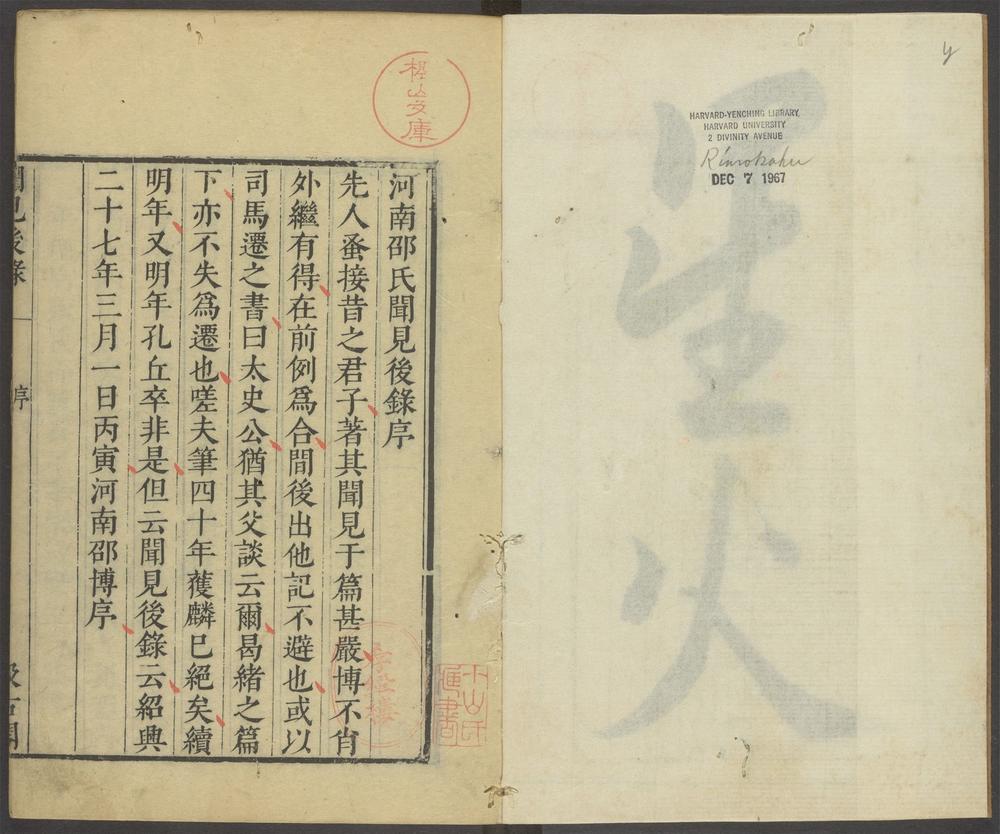 y
HARVARD-YENCHING LIBRARY
HARVARD UNIVERSITY
2 DIVINITY AVENUE
Rinrokaku
DEC 7 1967
河南邵氏聞見後錄序
先人蚤接昔之君子著其聞見于篇甚嚴博不肖
外繼有得在前例爲合間後出他記不避也或以
司馬遷之書曰太史公猶其父談云爾曷緒之篇
下亦不失爲遷也嗟夫筆四十年蒦麟巳絕矣續
明年又明年孔丘卒非是但云聞見後錄云紹興
二十七年三月一日丙寅河南邵博序
聞見後錄
序
汲古閣
文庫